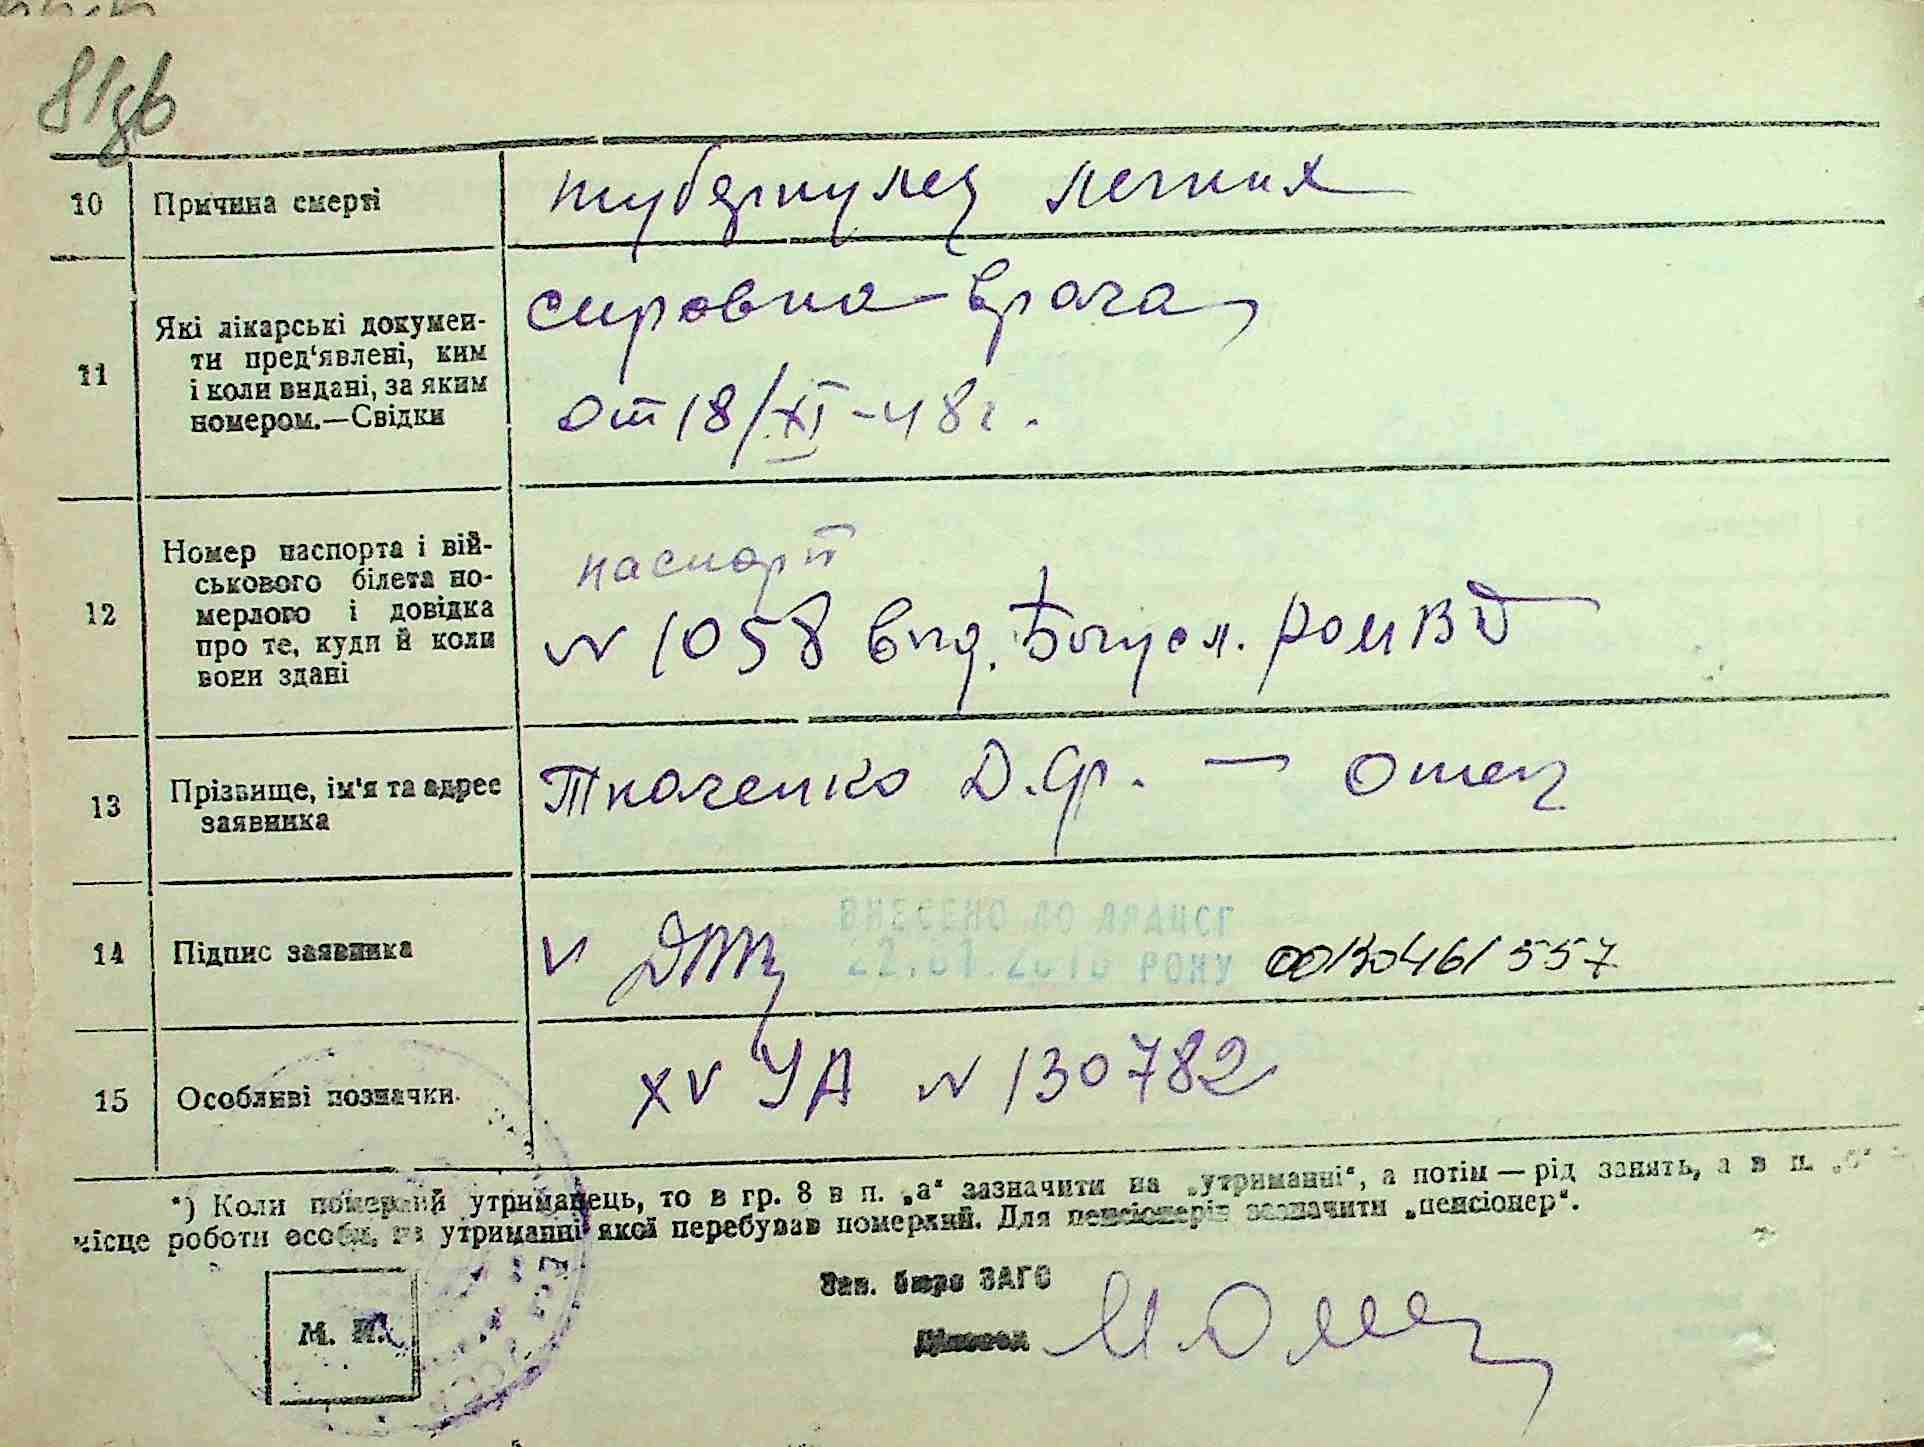 81зв
10 Причина смерті туберкулез легких
11 Які лікарські докумен-
ти пред'явлені, ким
і коли видані, за яким
номером.—Свідки
справка врача
от 18/XI-48г.
12 Номер паспорта і вій-
ськового білета по-
мерлого і довідка
про те, куди й коли
вони здані
паспорт
N 1058 выд. Богусл. РОМВД
13 Прізвище, ім'я та адрес
заявника
Ткаченко Д.Ф. — отец
14 Підпис заявника
ВНЕСЕНО ДО ДРАЦСГ
22.01.2010 РОКУ
00130461557
15 Особливі позначки.
XV УА N 130782
*) Коли померлий утриманець, то в гр. 8 в п. „а“ зазначити на „утриманні“, а потім — рід занять, а в п. „б“ —
місце роботи особи, на утриманні якої перебував померлий. Для пенсіонерів зазначити „пенсіонер“.
Зав. бюро ЗАГС
М. П.
Діловод